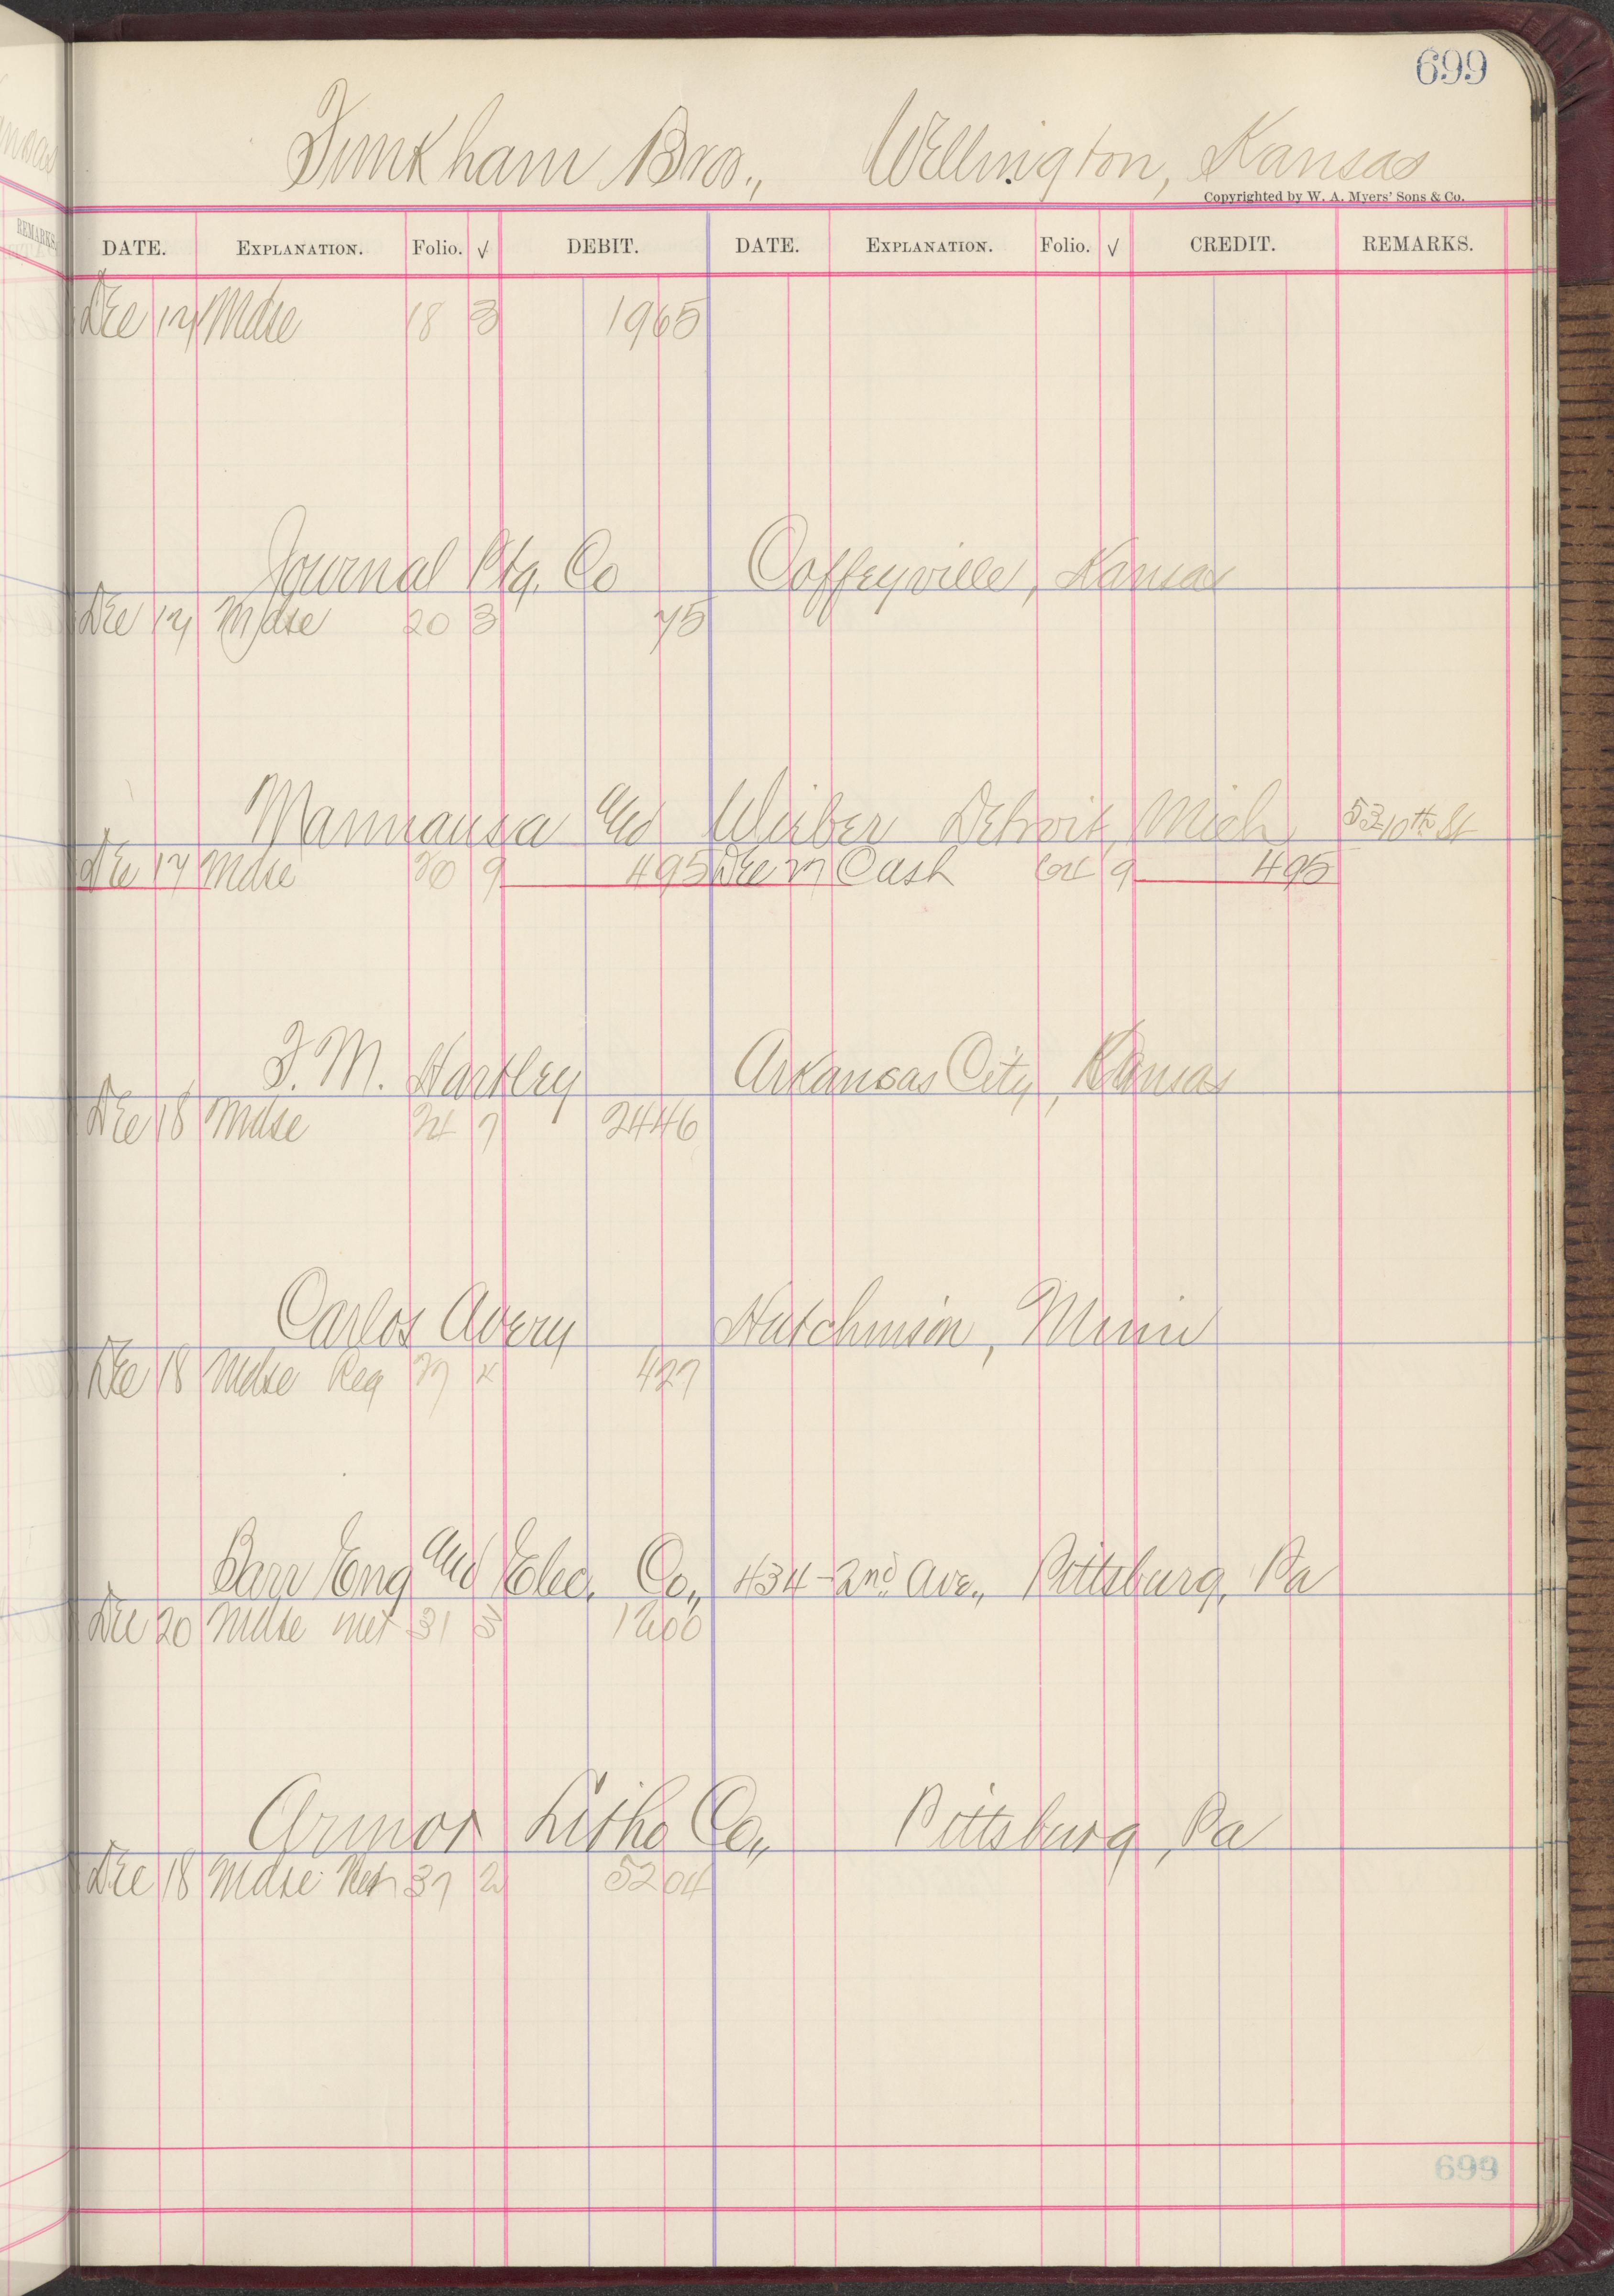 699
Bros., Wellington, Kansas
Copyrighted by W. A. Myers' Sons & Co.
DATE. EXPLANATION. Folio. √ DEBIT. DATE. EXPLANATION. Folio. √ CREDIT. REMARKS.
Dec 17 Mdse 18 3 1965
Journal Ptg. Co Coffeyville, Kansas
Dec 17 Mdse 20 3 75
and Detroit, Mich 53-10th St
Dec 17 Mdse 20 9 495 Dec 27 Cash 9 495
F. M. Hartley Arkansas City, Kansas
Dec 18 Mdse 24 7 2446
Carlos Avery Hutchinson, Minn
Dec 18 Mdse Reg 27 x 427
Barr Eng and Elec. Co., 434-2nd Ave., Pittsburg, Pa
Dec 20 Mdse Net 31 3 1200
Armor Litho Co., Pittsburg, Pa
Dec 18 Mdse Net 37 2 5204
699